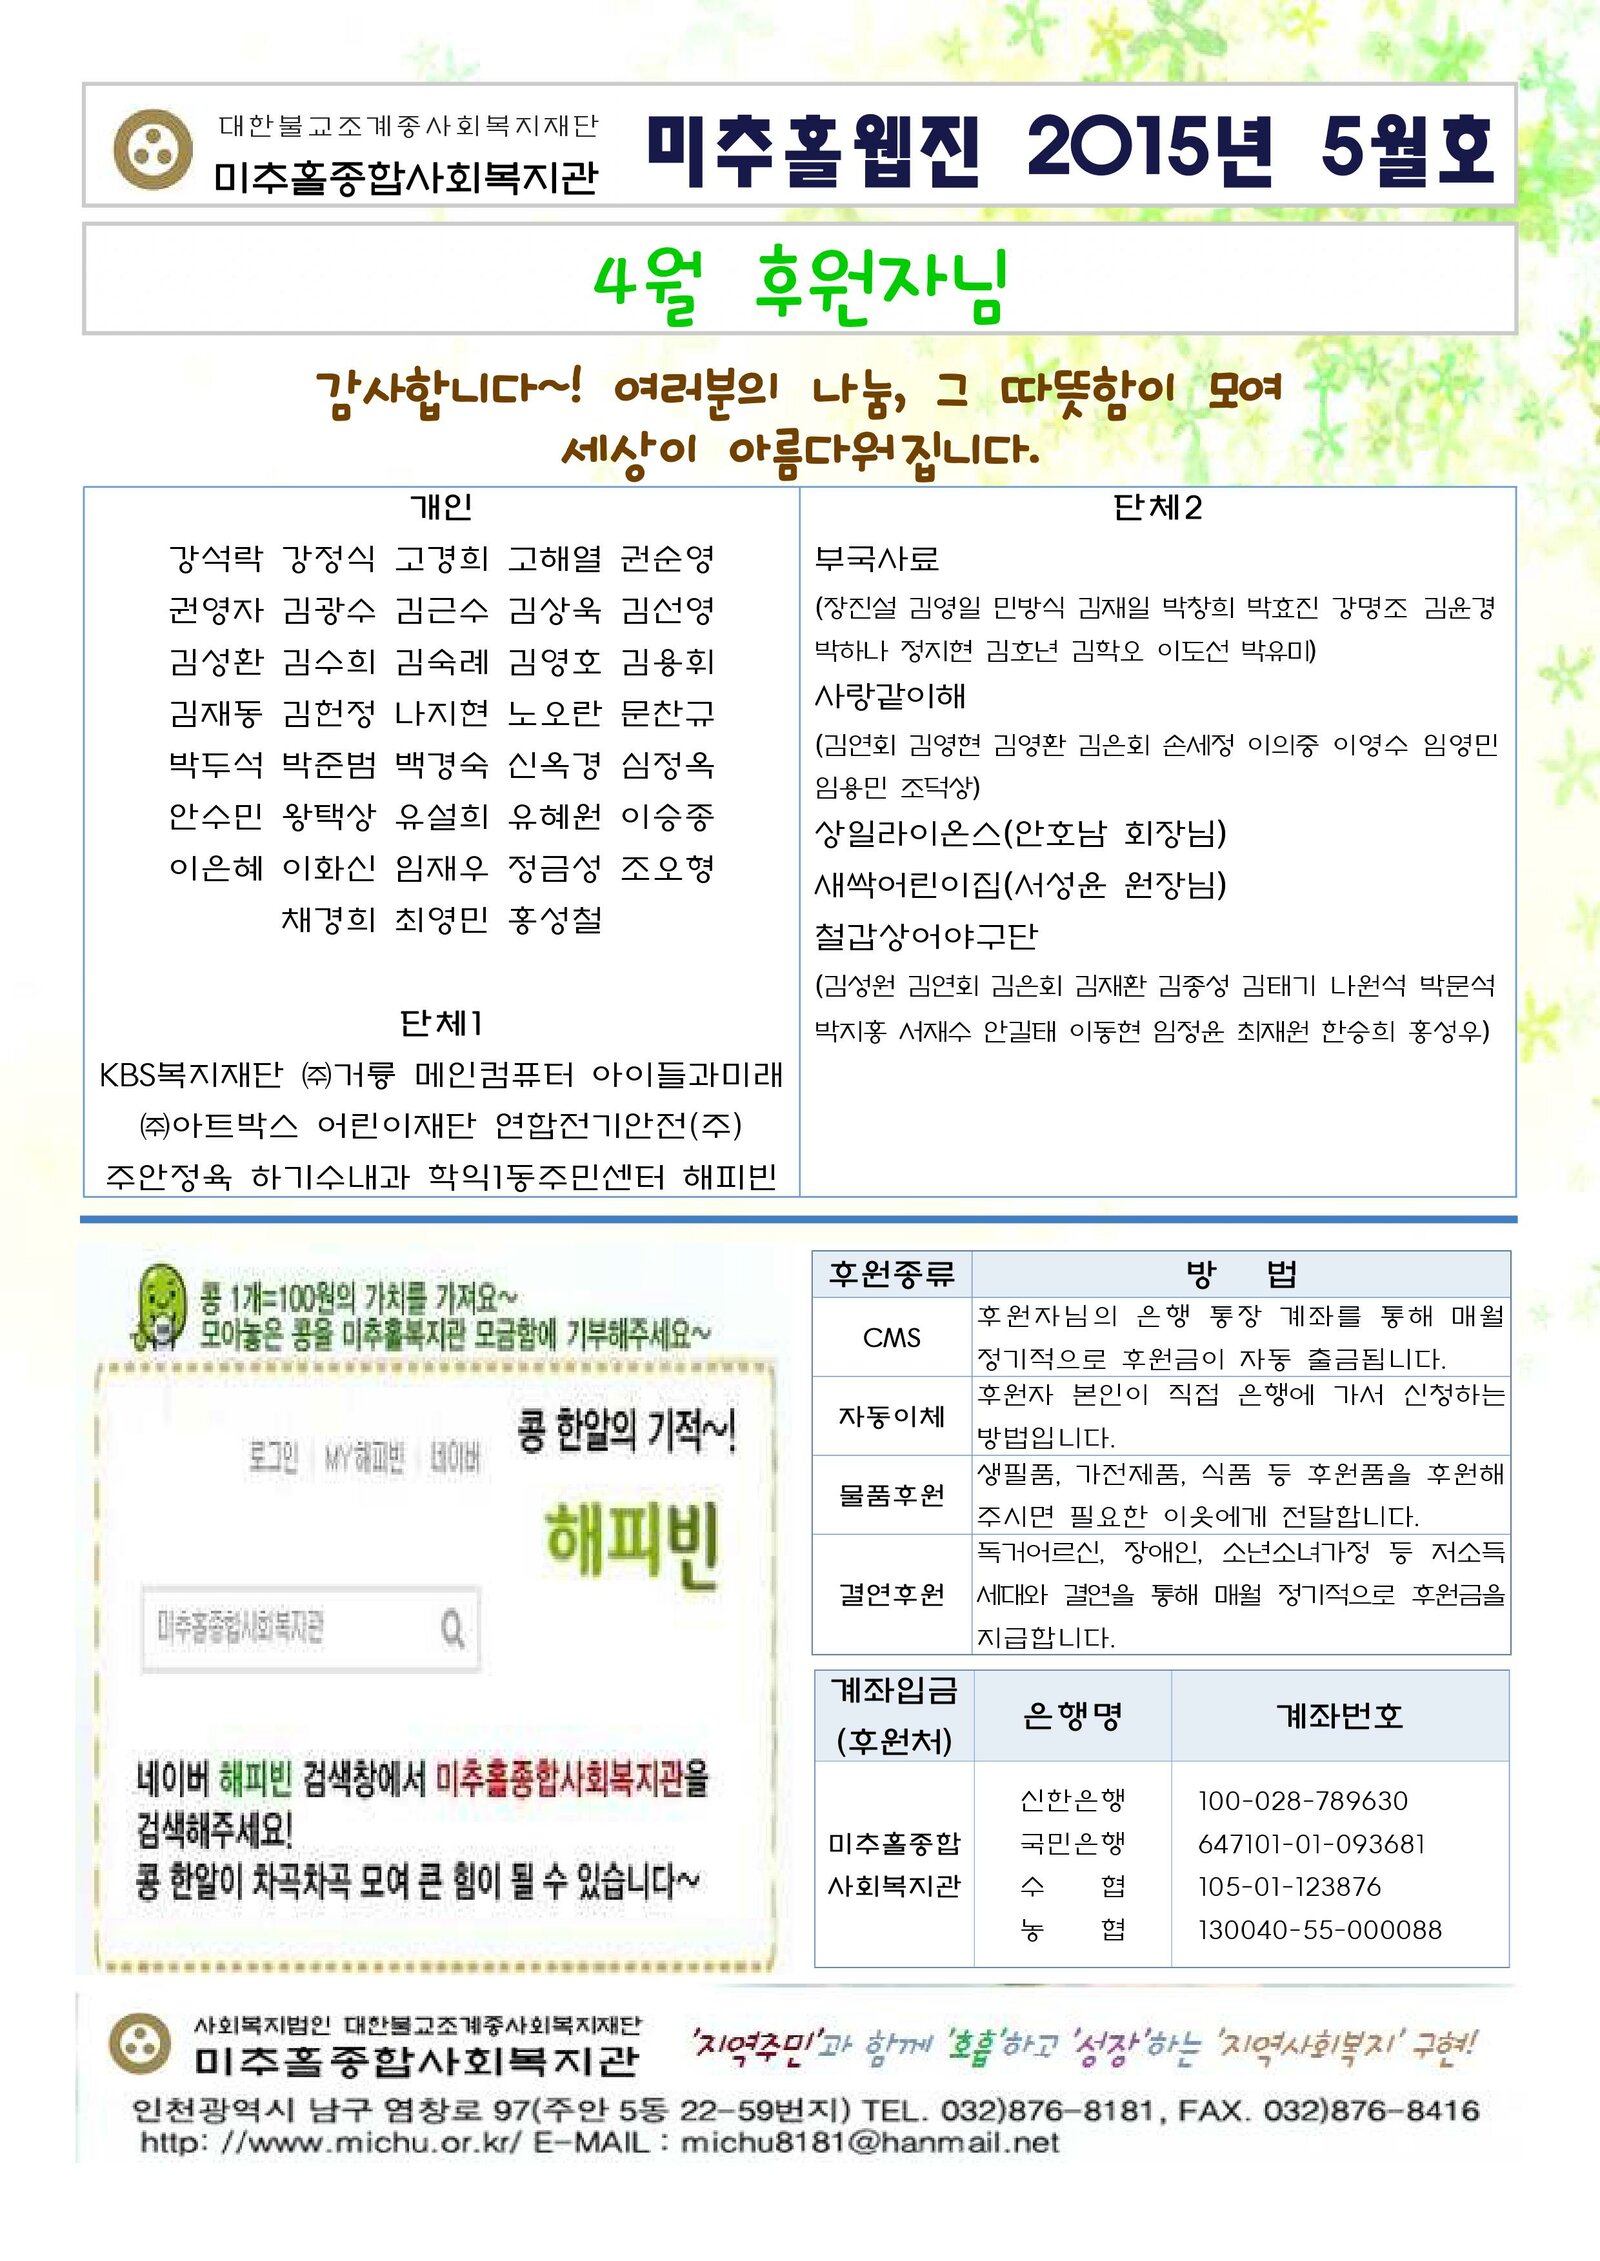 대한불교조계종사회복지재단
미추홀종합사회복지관
미추홀웹진 2015년 5월호
4월 후원자님
감사합니다~! 여러분의 나눔, 그 따뜻함이 모여
세상이 아름다워집니다.
개인
강석락 강정식 고경희 고해열 권순영
권영자 김광수 김근수 김상욱 김선영
김성환 김수희 김숙례 김영호 김용휘
김재동 김헌정 나지현 노오란 문찬규
박두석 박준범 백경숙 신옥경 심정옥
안수민 왕택상 유설희 유혜원 이승종
이은혜 이화신 임재우 정금성 조오형
채경희 최영민 홍성철
단체1
KBS복지재단 ㈜거룡 메인컴퓨터 아이들과미래
㈜아트박스 어린이재단 연합전기안전(주)
주안정육 하기수내과 학익1동주민센터 해피빈
단체2
부국사료
(장진설 김영일 민방식 김재일 박창희 박효진 강명조 김윤경
박하나 정지현 김호년 김학오 이도선 박유미)
사랑같이해
(김연회 김영현 김영환 김은회 손세정 이의중 이영수 임영민
임용민 조덕상)
상일라이온스(안호남 회장님)
새싹어린이집(서성윤 원장님)
철갑상어야구단
(김성원 김연회 김은회 김재환 김종성 김태기 나원석 박문석
박지홍 서재수 안길태 이동현 임정윤 최재원 한승희 홍성우)
콩 1개=100원의 가치를 가져요~
모아놓은 콩을 미추홀복지관 모금함에 기부해주세요~
콩 한알의 기적~!
로그인 | MY해피빈 | 네이버
해피빈
미추홀종합사회복지관
네이버 해피빈 검색창에서 미추홀종합사회복지관을
검색해주세요!
콩 한알이 차곡차곡 모여 큰 힘이 될 수 있습니다~
후원종류 방 법
CMS
후원자님의 은행 통장 계좌를 통해 매월
정기적으로 후원금이 자동 출금됩니다.
자동이체
후원자 본인이 직접 은행에 가서 신청하는
방법입니다.
물품후원
생필품, 가전제품, 식품 등 후원품을 후원해
주시면 필요한 이웃에게 전달합니다.
결연후원
독거어르신, 장애인, 소년소녀가정 등 저소득
세대와 결연을 통해 매월 정기적으로 후원금을
지급합니다.
계좌입금
(후원처)
은행명 계좌번호
미추홀종합
사회복지관
신한은행 100-028-789630
국민은행 647101-01-093681
수 협 105-01-123876
농 협 130040-55-000088
사회복지법인 대한불교조계종사회복지재단
미추홀종합사회복지관
'지역주민'과 함께 '호흡'하고 '성장'하는 '지역사회복지' 구현!
인천광역시 남구 염창로 97(주안 5동 22-59번지) TEL. 032)876-8181, FAX. 032)876-8416
http: //www.michu.or.kr/ E-MAIL : michu8181@hanmail.net